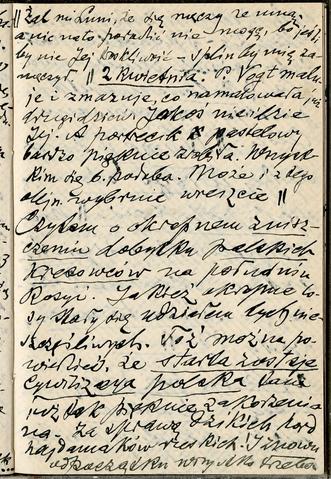 || Żal mi Luni, że się męczy ze mną
a nic na to poradzić nie mogę, bo jeśli
by nie Jej troskliwość – splin by mię za-
męczył || 2 kwietnia: P. Vogt malu-
je i zmazuje, co namalowała
drugi dzień. Jakoś nie idzie
Jej. A portrecik pastelowy
bardzo pięknie zrobiła. Wszyst-
kim się b. podoba. Może i z tego
olejn. wybrnie wreszcie ||
Czytam o okropnem znisz-
czeniu dobytku polskich
kresowców na południu
Rosyi. Jakież okropne lo-
sy stały się udziałem tych nie-
szczęśliwych. Toż można po-
wiedzieć, że starta zostaje
cywilizacya polska tam
tak pięknie zakorzenio-
na. Za sprawą dzikich hord
hajdamaków ruskich! I znowu
od początku wszystko trzeba